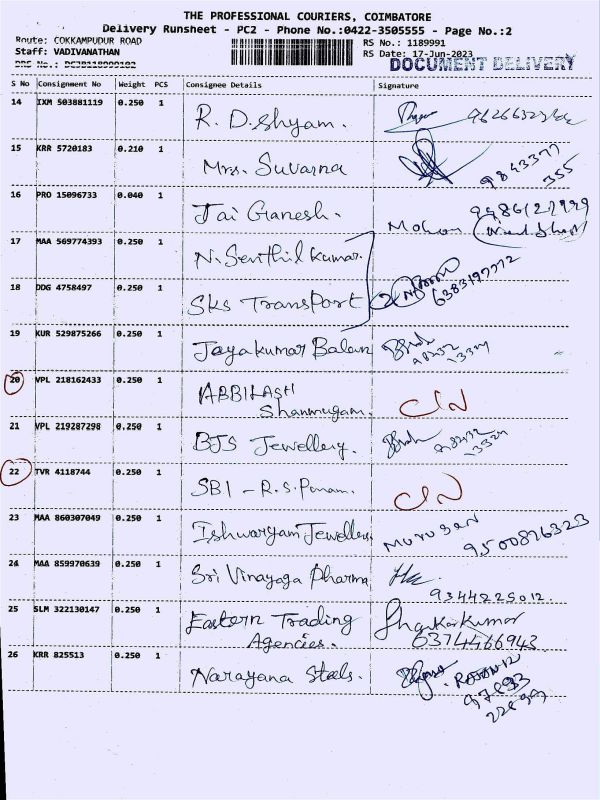 THE PROFESSIONAL COURIERS, COIMBATORE
Delivery Runsheet - PC2 - Phone No.:0422-3505555 - Page No.:2
Route: COKKAMPUDUR ROAD
RS No.: 1189991
Staff: VADIVANATHAN
RS Date: 17-Jun-2023
DOCUMENT DELIVERY
S No Consignment No Weight PCS Consignee Details Signature
14 IXM 503881119 0.250 1 R. D. Shyam.
15 KRR 5720183 0.210 1 Mrs. Suvarna 9843377
355
16 PRO 15096733 0.040 1 Jai Ganesh. Mohan
17 MAA 569774393 0.250 1 N. Senthil Kumar.
18 DDG 4758497 0.250 1 SKS Transport
19 KUR 529875266 0.250 1 Jayakumar Balan
20 VPL 218162433 0.250 1 ABBILASH
Shanmugam.
21 VPL 219287298 0.250 1 BJS Jewellery.
22 TVR 4118744 0.250 1 SBI - R.S. Puram.
23 MAA 860307049 0.250 1 Ishwaryam Jewellery Murugan
9500876323
24 MAA 859970639 0.250 1 Sri Vinayaga Pharma
9344225012.
25 SLM 322130147 0.250 1 Eastern Trading Shankar Kumar
Agencies. 6374466943
26 KRR 825513 0.250 1 Narayana Steels.